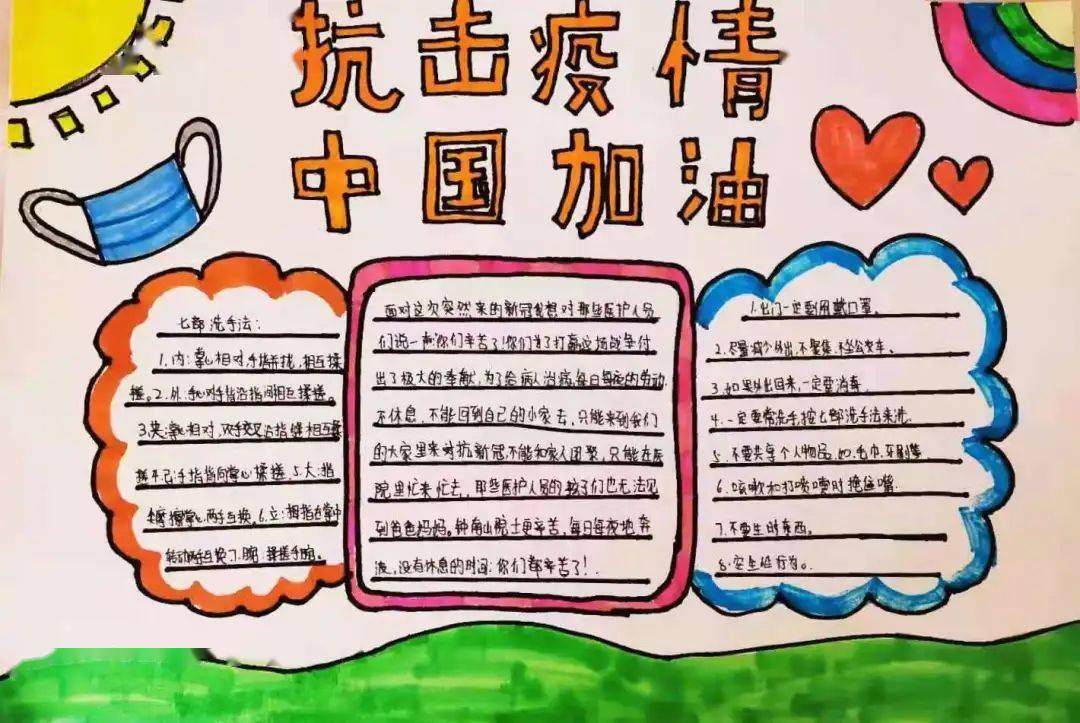 抗击疫情
中国加油
七部洗手法：
1.内：掌心相对手指并拢，相互揉
搓。2.外：手心对手指沿指间相互揉搓。
3.夹：掌心相对，双手交叉沿指缝相互揉
手指指向掌心揉搓，5.大：指
掌心两手互换，6.立：拇指在掌中
转动两手互换7.腕：揉搓手腕。
面对这次突然来的新冠我想对那些医护人员
们说一声：你们辛苦了！你们为了打赢这场战争付
出了极大的奉献，为了给病人治病，每日每夜的劳动，
不休息，不能回到自己的小家去，只能来到我们
的大家里来对抗新冠，不能和家人团聚，只能在医
院里忙来忙去，那些医护人员的孩子们也无法见
到爸爸妈妈。钟南山院士更辛苦，每日每夜地奔
波，没有休息的时间：你们都辛苦了！
1.出门一定要用戴口罩。
2.尽量减少外出，不聚集，不坐公交车。
3.如果外出回来，一定要消毒。
4.一定要常洗手，按七部洗手法来洗。
5.不要共享个人物品，如：毛巾，牙刷等。
6.咳嗽和打喷嚏时捂住嘴。
7.不要生吃东西。
8.安全性行为。